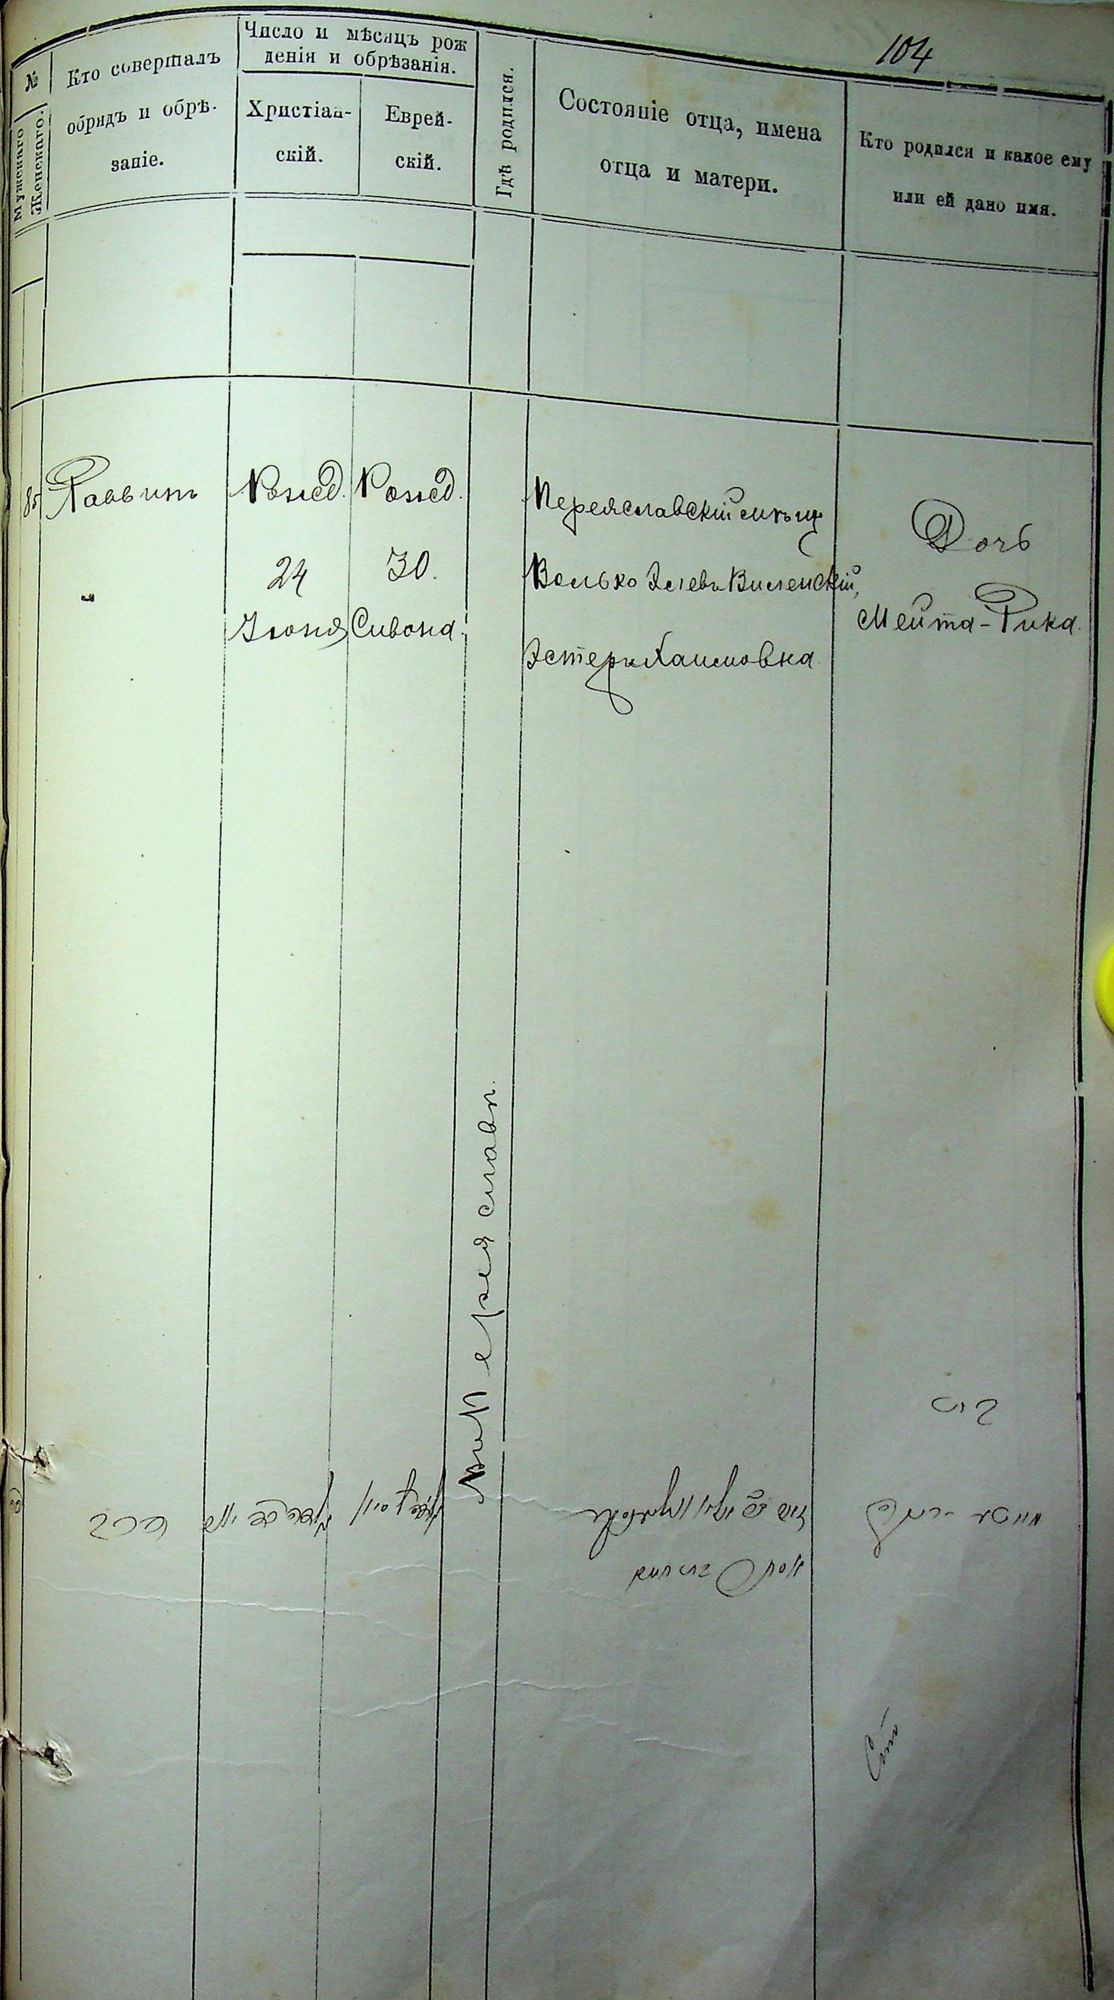 104
№
Мужскаго
Женскаго.
Кто совершалъ
обрядъ и обрѣ-
заніе.
Число и мѣсяцъ рож
денія и обрѣзанія.
Христіан-
скій.
Еврей-
скій.
Гдѣ родился.
Состояніе отца, имена
отца и матери.
Кто родился и какое ему
или ей дано имя.
85
Раввинъ
Рожд.
24
Іюня
Рожд.
30.
Сивона.
Переяславскій мѣщ
Волько Элевъ Виленскій,
Эстеръ Хаимовна.
Дочь
Мейта-Рика.
Переяславѣ.
Сто